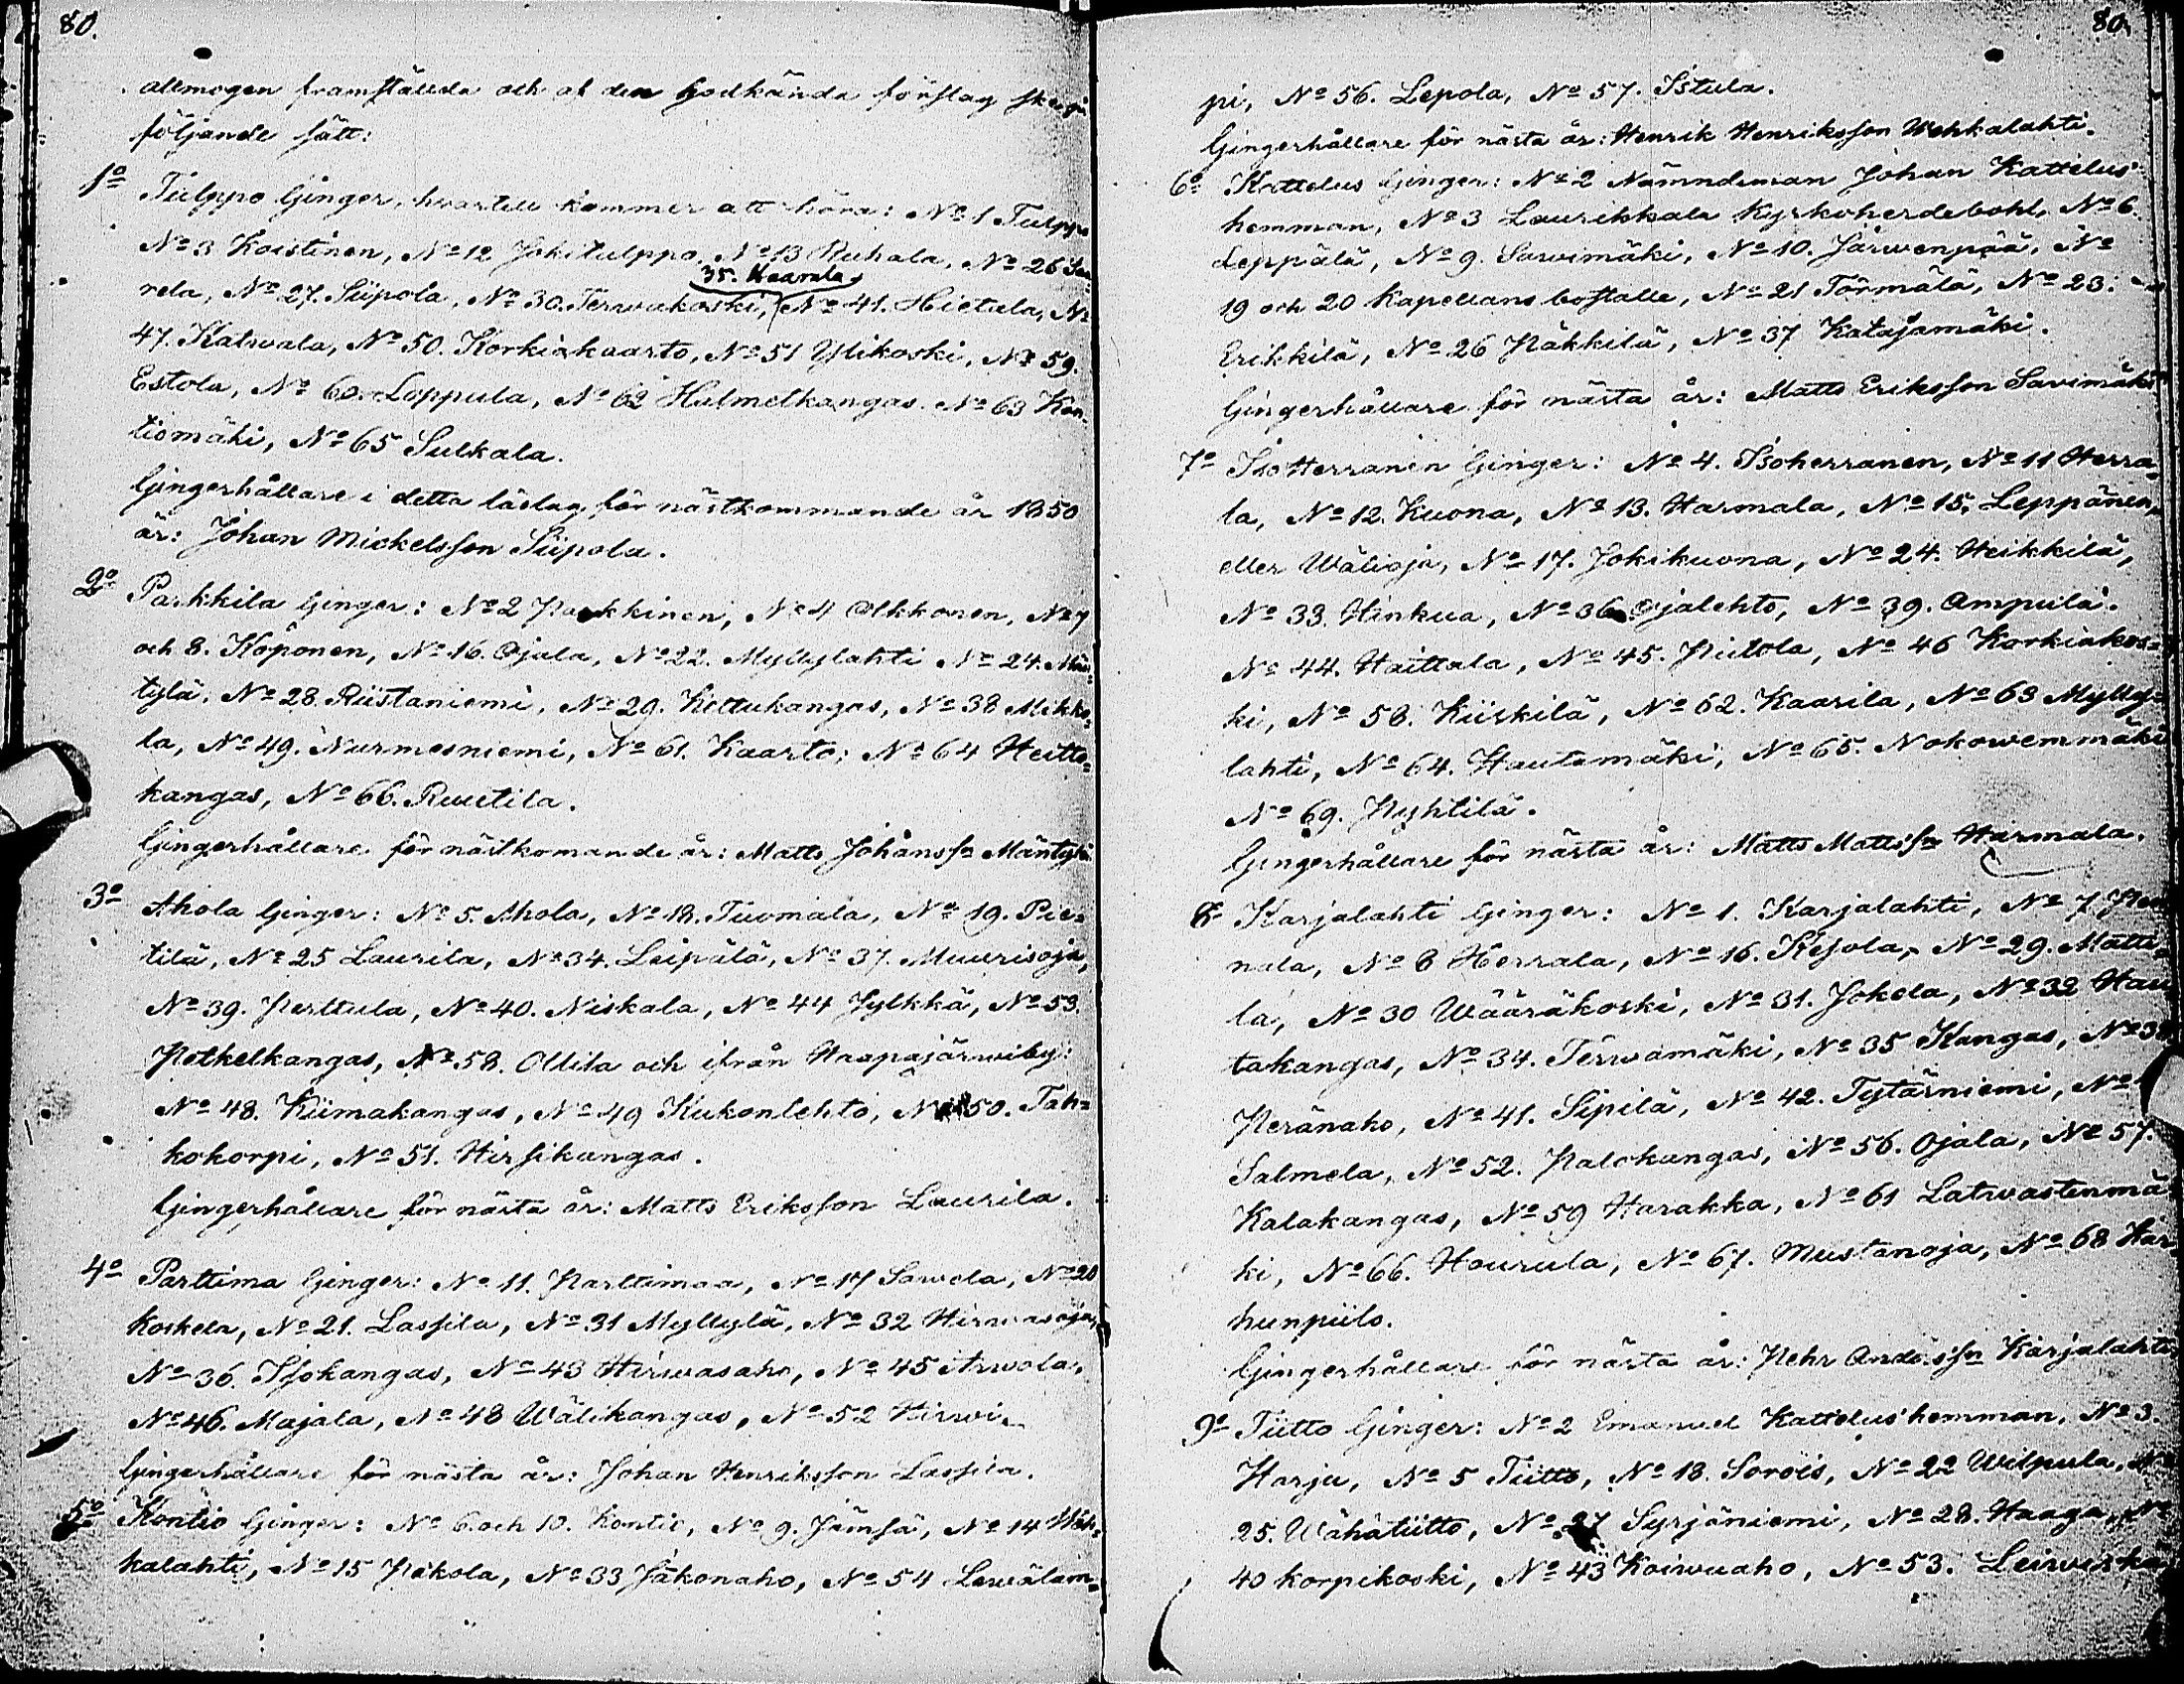 80.
allmogen framställda och af den godkända förslag ske på
följande sätt:
1o Tulppo Ginger, hvartill kommer att höra: No 1 Tulppo
No 3 Koistinen, No 12 Jokitulppo, No 13 Ruhala, No 26 Saa-
35. Kaarela
rela, No 27. Siipola, No 30. Terwakoski, No 41. Hietala, No
47. Katwala, No 50. Korkiakaarto, No 51 Ylikoski, No 59.
Estola, No 60. Loppula, No 62 Halmetkangas. No 63 Kon-
tiomäki, No 65 Sulkala.
Gingerhållare i detta läslag för nästkommande år 1850
är: Johan Mickelsson Siipola.
2o Parkkila Ginger: No 2 Parkkinen, No 4 Olkkonen, No 7
och 8. Köponen, No 16. Ojala, No 22. Myllylahti No 24. Män-
tylä, No 28 Riistaniemi, No 29. Kettukangas, No 38 Mikko-
la, No 49. Nurmesniemi, No 61. Kaarto; No 64 Heitto-
kangas, No 66. Ruutila.
Gingerhållare för nästkomande år: Matts Johanss:n Mäntylä
3o Ahola Ginger: No 5. Ahola, No 18. Tuomala, No 19. Pie-
tilä, No 25 Laurila, No 34. Leipälä, No 37. Muurisoja,
No 39. Perttula, No 40. Niskala, No 44 Jylkkä, No 53.
Potkelkangas, No 58. Ollila och ifrån Haapajärwiby:
No 48. Kiimakangas, No 49 Kukonlehto, No 50. Tah-
kokorpi, No 51. Hirsikangas.
Gingerhållare för nästa år: Matts Eriksson Laurila.
4o Parttima Ginger: No 11. Parttimaa, No 17 Sawela, No 20
Koskela, No 21. Lassila, No 31 Myllylä, No 32 Hirwasoja,
No 36. Isokangas, No 43 Hirwasaho, No 45 Arwola,
No 46. Majala, No 48 Wälikangas, No 52 Hirwi.
Gingerhållare för nästa år: Johan Henriksson Lassila.
5o Kontio Ginger: No 6. och 10. Kontio, No 9. Jämsä, No 14 Weh-
kalahti, No 15 Pakola, No 33 Jäkonaho, No 54 Lewälam-
80.
pi, No 56. Lepola, No 57. Istula.
Gingerhållare för nästa år: Henrik Henriksson Wehkalahti.
6o Kattelus Ginger: No 2 Nämndeman Johan Kattelus'
hemman, No 3 Laurikkala Kyrkoherdebohl, No 6.
Leppälä, No 9. Sawimäki, No 10. Järwenpää, No
19 och 20 Kapellans bostalle, No 21 Törmälä, No 23:
Erikkilä, No 26 Päkkilä, No 37 Katajamäki.
Gingerhållare för nästa år: Matts Eriksson Savimäki
7o Iso Herranen Ginger: No 4. Isoherranen, No 11 Herra-
la, No 12. Kuona, No 13. Harmala, No 15. Leppänen,
eller Wälioja, No 17. Jokikuona, No 24. Heikkilä,
No 33. Hinkua, No 36 Ojalehto, No 39. Ampiula.
No 44. Haittala, No 45. Piitola, No 46 Korkiakos-
ki, No 58. Kiiskilä, No 62. Kaarila, No 63 Mylly-
lahti, No 64. Hautamäki, No 65. Nokowemmäki
No 69. Pyhtilä.
Gingerhållare för nästa år: Matts Mattss:n Harmala.
8o Karjalahti Ginger: No 1. Karjalahti, No 7
nala, No 8 Herrala, No 16. Kesola, No 29. Matti-
la, No 30 Wääräkoski, No 31. Jokela, No 32 Hau
takangas, No 34. Terwamäki, No 35 Kangas, No 38
Peränaho, No 41. Sipilä, No 42. Tytärniemi, No
Salmela, No 52. Palokangas, No 56. Ojala, No 57.
Kalakangas, No 59 Harakka, No 61 Latwastenmä-
ki, No 66. Hourula, No 67. Mustanoja, No 68 Kar-
hunpiilo.
Gingerhållare för nästa år: Pehr Anders:sn Karjalahti
9o Tiitto Ginger: No 2 Emanuel Kattelus' hemman, No 3.
Harju, No 5 Tiitto, No 18. Sorois, No 22 Wilpula, No
25. Wähätiitto, No 27 Syrjäniemi, No 28. Haaga, No
40 Korpikoski, No 43 Koiwuaho, No 53. Leiwiska